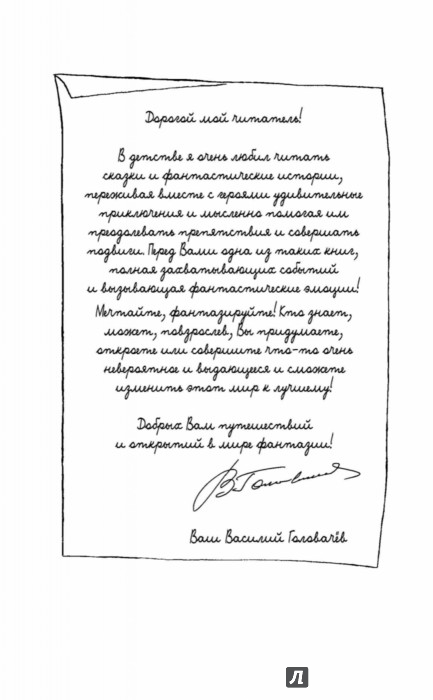 Дорогой мой читатель!
В детстве я очень любил читать
сказки и фантастические истории,
переживая вместе с героями удивительные
приключения и мысленно помогая им
преодолевать препятствия и совершать
подвиги. Перед Вами одна из таких книг,
полная захватывающих событий
и вызывающая фантастические эмоции!
Мечтайте, фантазируйте! Кто знает,
может, повзрослев, Вы придумаете,
откроете или совершите что-то очень
невероятное и выдающееся и сможете
изменить этот мир к лучшему!
Добрых Вам путешествий
и открытий в мире фантазии!
В. Головачев
Ваш Василий Головачёв
Л